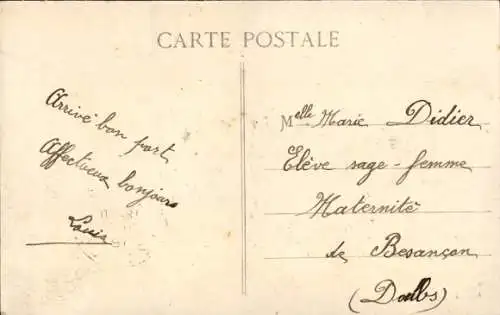 CARTE POSTALE
Arrivé bon port
Affectueux bonjours
Louis
Melle Marie Didier
Elève sage-femme
Maternité
de Besançon
(Doubs)